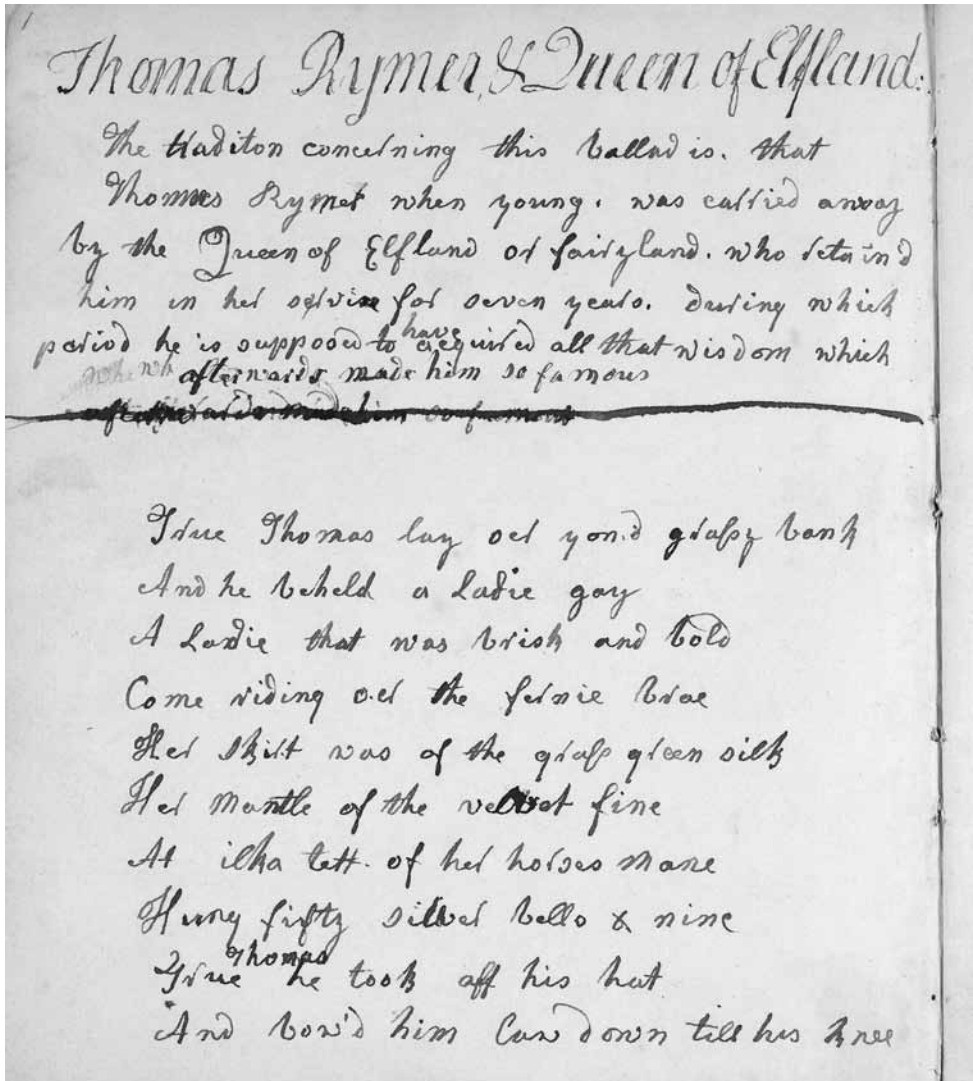 1
Thomas Rymer, & Queen of Elfland.
The traditon concerning this ballad is. that
Thomas Rymer when young. was carried away
by the Queen of Elfland or fairyland. who retain'd
him in her service for seven years. during which
period he is supposed to have acquired all that wisdom which
afterwards made him so famous
afterwards made him so famous
True Thomas lay oer yon'd graſsy bank
And he beheld a Ladie gay
A Ladie that was brisk and bold
Come riding o.er the fernie brae
Her skirt was of the graſs green silk
Her Mantle of the velvet fine
At ilka tett. of her horses Mane
Hung fifty silver bells & nine
True Thomas he took aff his hat
And bow'd him Low down till his knee